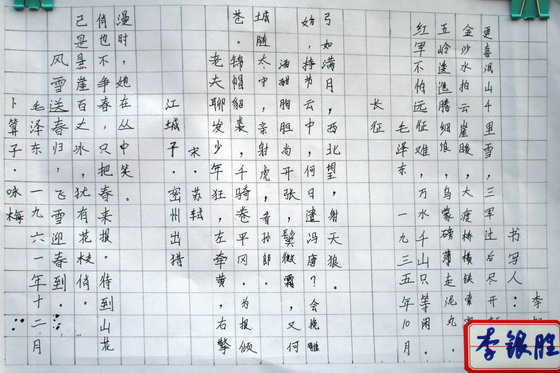 卜算子·咏梅
毛泽东 一九六一年十二月
风雪送春归,飞雪迎春到.
已是悬崖百丈冰,犹有花枝俏.
俏也不争春,只把春来报.待到山花
漫时,她在丛中笑.
江城子·密州出猎
宋·苏轼
老夫聊发少年狂,左牵黄,右擎
苍.锦帽貂裘,千骑卷平冈.为报倾
城随太守,亲射虎,看孙郎.
酒酣胸胆尚开张,鬓微霜?又何
妨,持节云中,何日遣冯唐?会挽雕
弓,如满月,西北望,射天狼.
长征
毛泽东,一九三五年10月.
红军不怕远征难,万水千山只等闲.
五岭逶迤腾细浪,乌蒙磅礴走泥丸
金沙水拍云崖暖,大渡桥横铁索
更喜岷山千里雪,三军过后尽开
书写人:李
李银胜